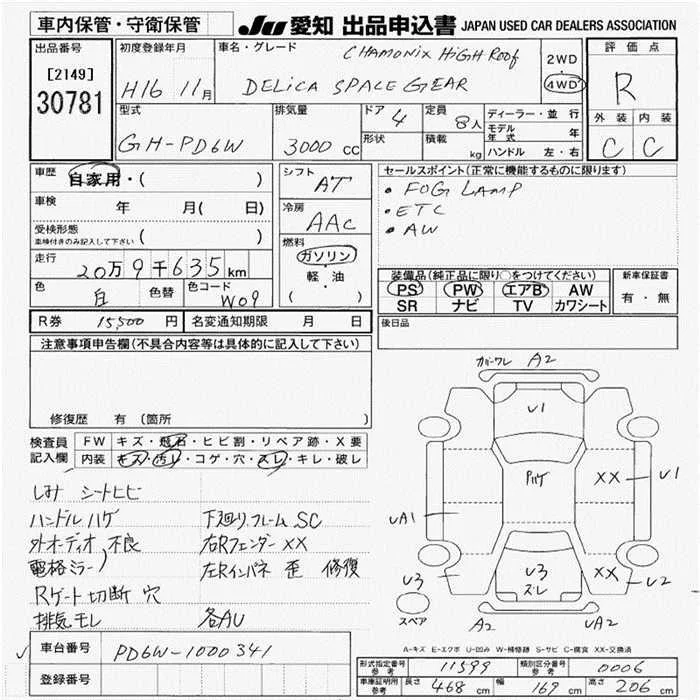 車内保管・守衛保管 JU 愛知 出品申込書 JAPAN USED CAR DEALERS ASSOCIATION
出品番号 初度登録年月 車名・グレード CHAMONIX HiGH Roof 2WD 評価点
[2149] H16 11月 DELiCA SPACE GEAR 4WD R
30781 型式 排気量 ドア 4 定員 8人 ディーラー・並行 外装 内装
GH-PD6W 3000 cc 形状 積載 kg モデル年式 年 C C
ハンドル 左・右
車歴 自家用・( ) シフト AT セールスポイント(正常に機能するものに限ります)
車検 年 月( 日) 冷房 AAC ・FOG LAMP
受検形態 ( ) ・ETC
車検付きのみ記入して下さい ・AW
燃料 ガソリン
軽・油
( )
走行 20万9千635km 装備品(純正品に限り○をつけてください) 新車保証書
色 白 色替 色コード W09 PS PW エアB AW 有・無
SR ナビ TV カワシート
R券 15,500 円 名変通知期限 月 日 後日品
注意事項申告欄(不具合内容等は具体的に記入して下さい)
修復歴 有 (箇所
検査員記入欄 FW キズ・飛石・ヒビ割・リペア跡・X要
内装 キズ・汚レ・コゲ・穴・スレ・キレ・破レ
しみ シートヒビ
ハンドルハゲ 下廻り.フレームSC
外オーディオ 不良 右Rフェンダー XX
電格ミラー) 左Rインパネ 歪 修復
Rゲート切断 穴
排気モレ 各AU
カバーワレ A2
U1
パハゲ XX U1
UA1
U3 U3 ズレ XX U2
スペア A2 UA2
A-キズ E-エクボ U-凹み W-補修跡 S-サビ C-腐食 XX-交換済
車台番号 PD6W-1000341
登録番号
型式指定番号 参考 11599 類別区分番号 参考 0006
車庫証明用 参考 長さ 468 cm 幅 169 cm 高さ 206 cm